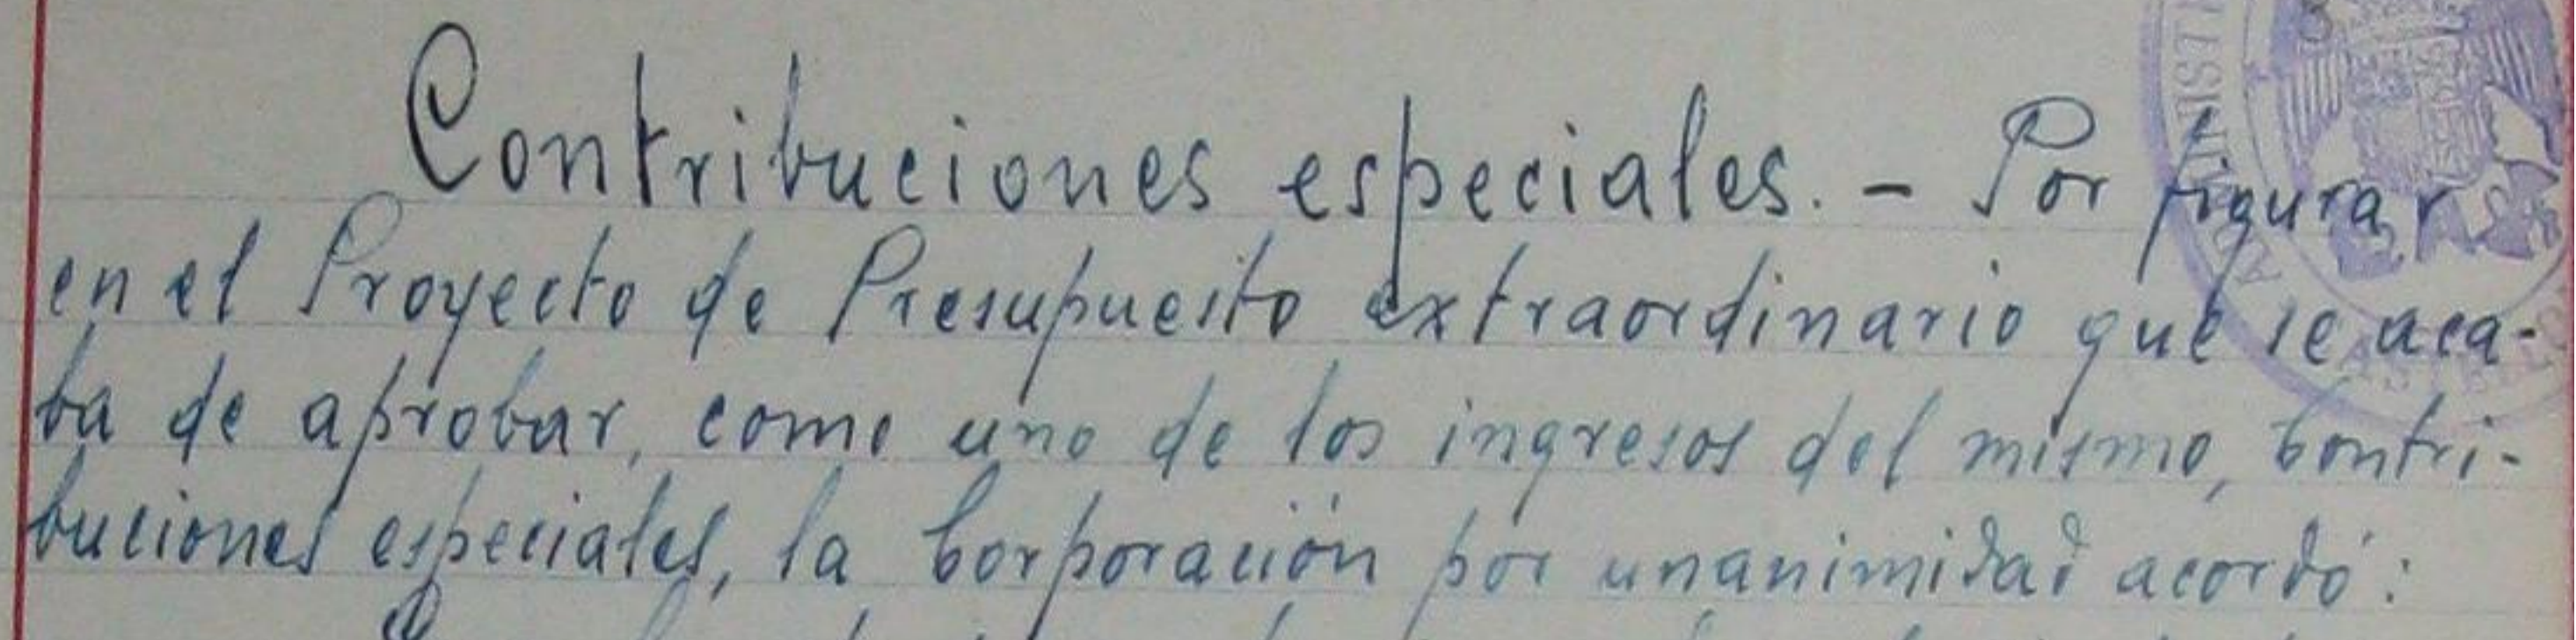 Contribuciones especiales. - Por figurar
en el Proyecto de Presupuesto extraordinario que se aca-
ba de aprobar, como uno de los ingresos del mismo, Contri-
buciones especiales, la Corporación por unanimidad acordó: